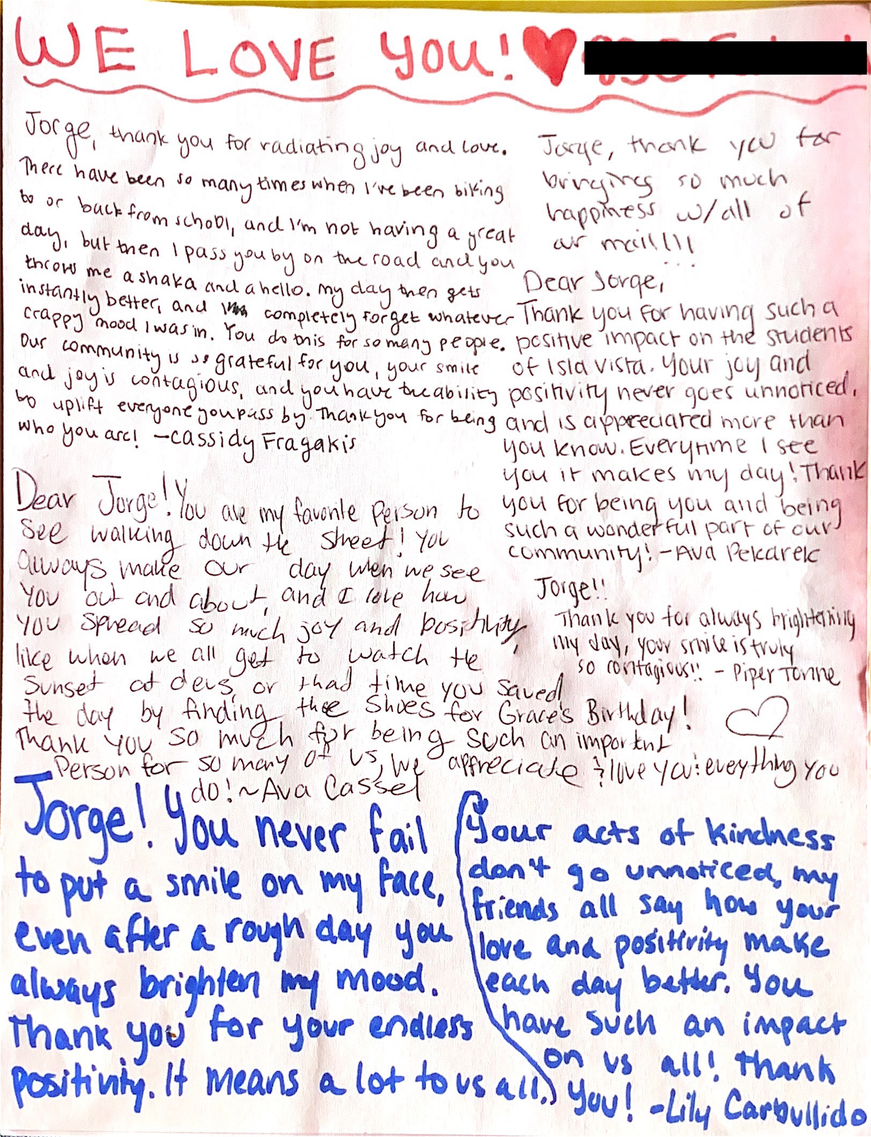 WE LOVE YOU!
Jorge, thank you for radiating joy and love.
There have been so many times when I've been biking
to or back from school, and I'm not having a great
day, but then I pass you by on the road and you
throw me a shaka and a hello. My day then gets
instantly better, and completely forget whatever
crappy mood I was in. You do this for so many people.
Our community is so grateful for you, your smile
and joy is contagious, and you have the ability
to uplift everyone you pass by. Thank you for being
who you are! -Cassidy Fragakis
Jorge, thank you for
bringing so much
happiness w/all of
our mail!!!
Dear Jorge,
Thank you for having such a
positive impact on the students
of Isla Vista. Your joy and
positivity never goes unnoticed,
and is appreciated more than
you know. Everytime I see
you it makes my day! Thank
you for being you and being
such a wonderful part of our
community! -Ava Pekarek
Dear Jorge! You are my favorite person to
see walking down the street! You
always make our day when we see
you out and about, and I love how
you spread so much joy and positivity,
like when we all get to watch the
sunset at devs, or that time you saved
the day by finding the shoes for Grace's Birthday!
Thank you so much for being such an important
Person for so many of us, we appreciate & love you & everything you
do! ~Ava Cassel
Jorge!!
Thank you for always brightening
my day, your smile is truly
so contagious!! - Piper Tonne
Jorge! You never fail
to put a smile on my face,
even after a rough day you
always brighten my mood.
Thank you for your endless
positivity. It means a lot to us all.
Your acts of kindness
don't go unnoticed, my
friends all say how your
love and positivity make
each day better. You
have such an impact
on us all! Thank
you! -Lily Carbullido